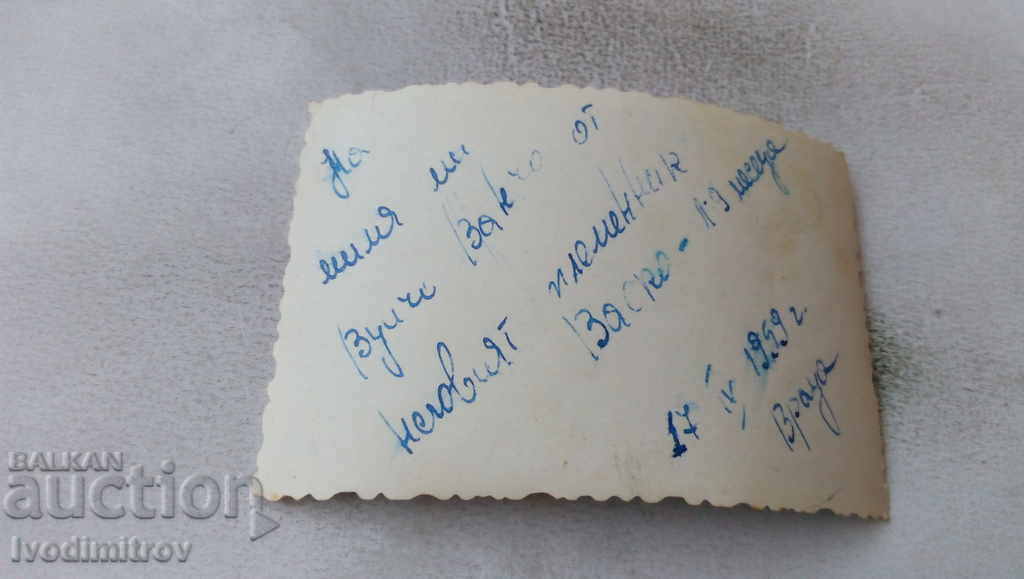 На
миля ми
Вуйчо Ванчо от
неговият племенник
Васко - 9 месеца
17 IV 1959 г.
Враца
BALKAN
auction
Ivodimitrov